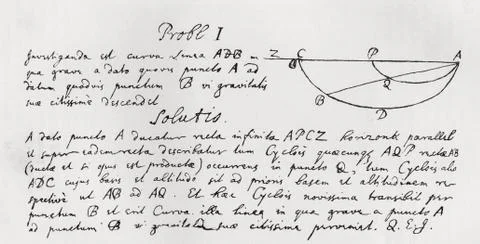 Probl I
Z C P A
Investiganda est curva Linea ADB in
qua grave a dato quovis puncto A ad
datum quodvis punctum B vi gravitatis
suæ citissime descendet
B Q D
Solutio.
A dato puncto A ducatur recta infinita APCZ horizonti parallela
et super eadem recta describatur tum Cyclois quæcunq AQP rectæ AB
(ductæ et si opus est productæ) occurrens in puncto Q, tum Cyclois alia
ADC cujus basis et altitudo sit ad prioris basem et altitudinem re-
spective ut AB ad AQ. Et hæc Cyclois novissima transibit per
punctum B et erit Curva illa linea in qua grave a puncto A
ad punctum B vi gravitatis suæ citissime perveniet. Q.E.I.